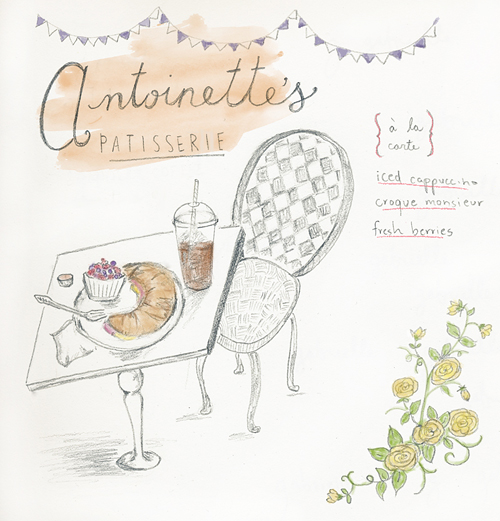 Antoinette's
PATISSERIE
{ à la
carte }
iced cappuccino
croque monsieur
fresh berries